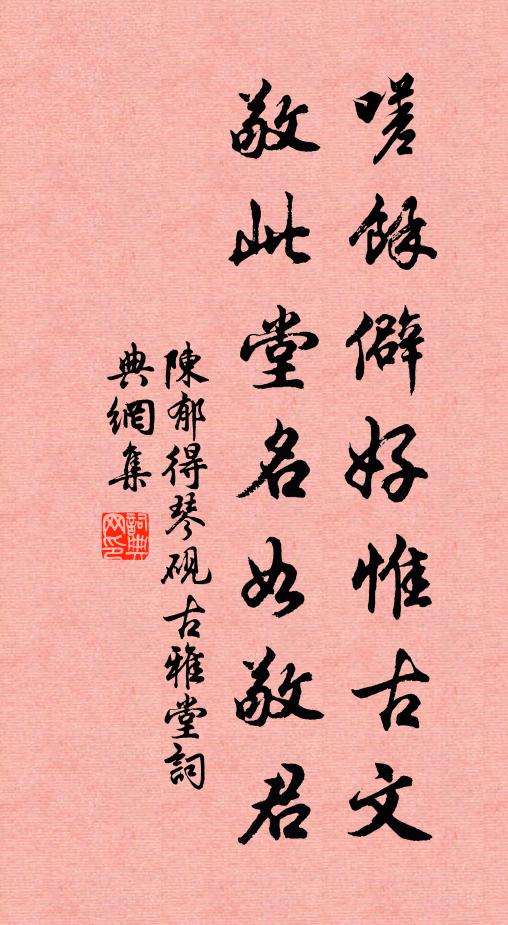 嗟餘僻好惟古文
敬此堂名如敬君
陳郁得琴硯古雅堂詞
典網集
詞典網印